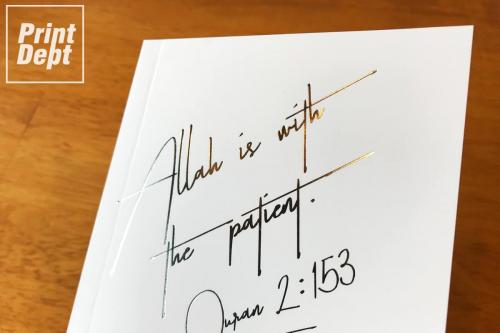 Print
Dept
Allah is with
the patient.
Quran 2:153